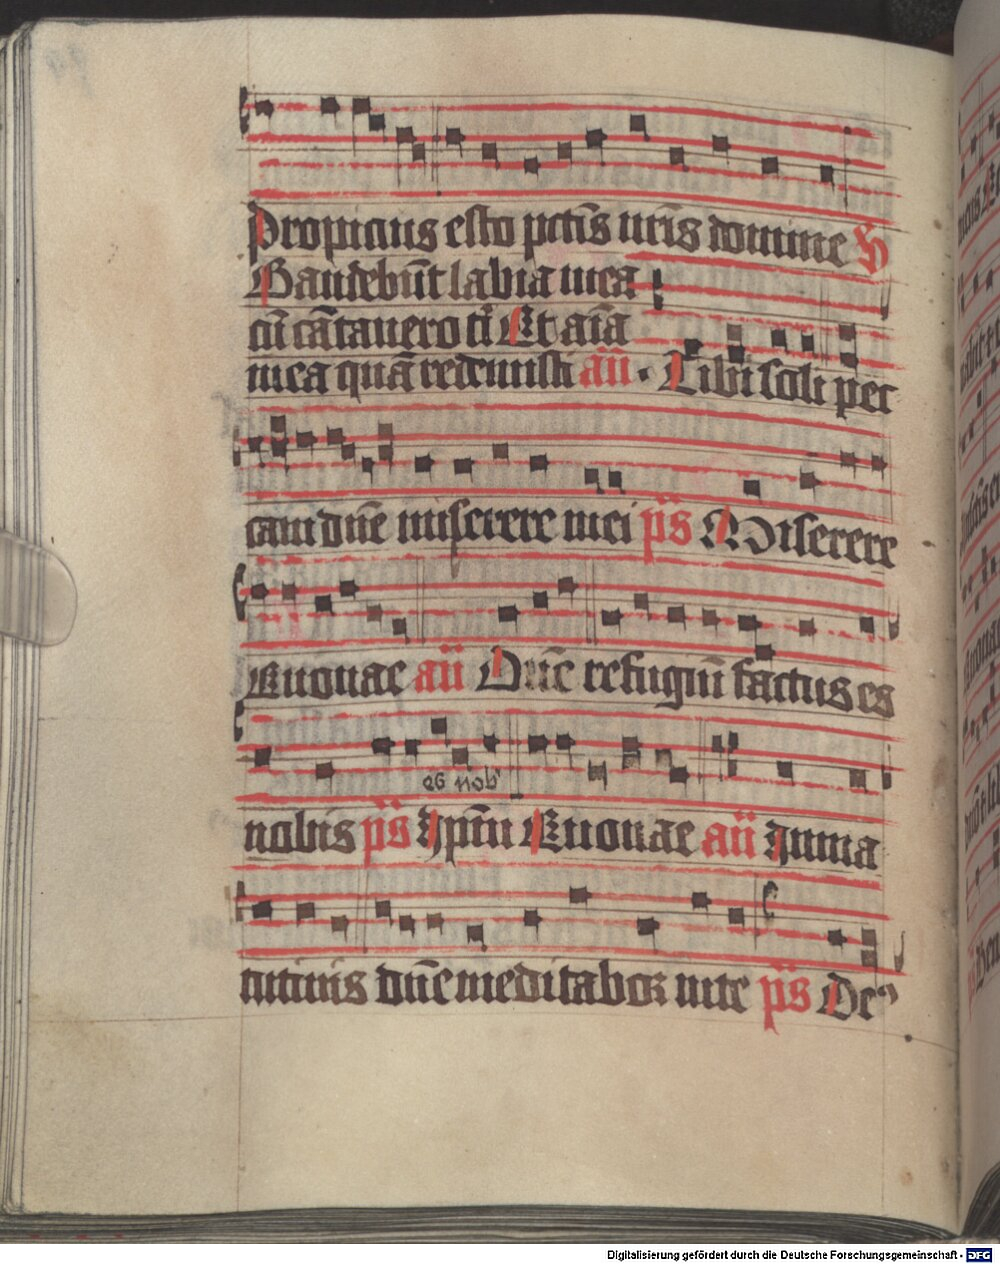 Propicius esto pctīs nrīs domine
Gaudebūt labia mea
cū cātauero ti Et aīa
mea quā redemisti añ Tibi soli pec
caui dn̄e miserere mei ps Miserere
Euouae añ Dn̄e refugiū factus es
nobis ps Ipm̄ Euouae añ In ma
tutinis dn̄e meditabor in te ps De
Digitalisierung gefördert durch die Deutsche Forschungsgemeinschaft - DFG